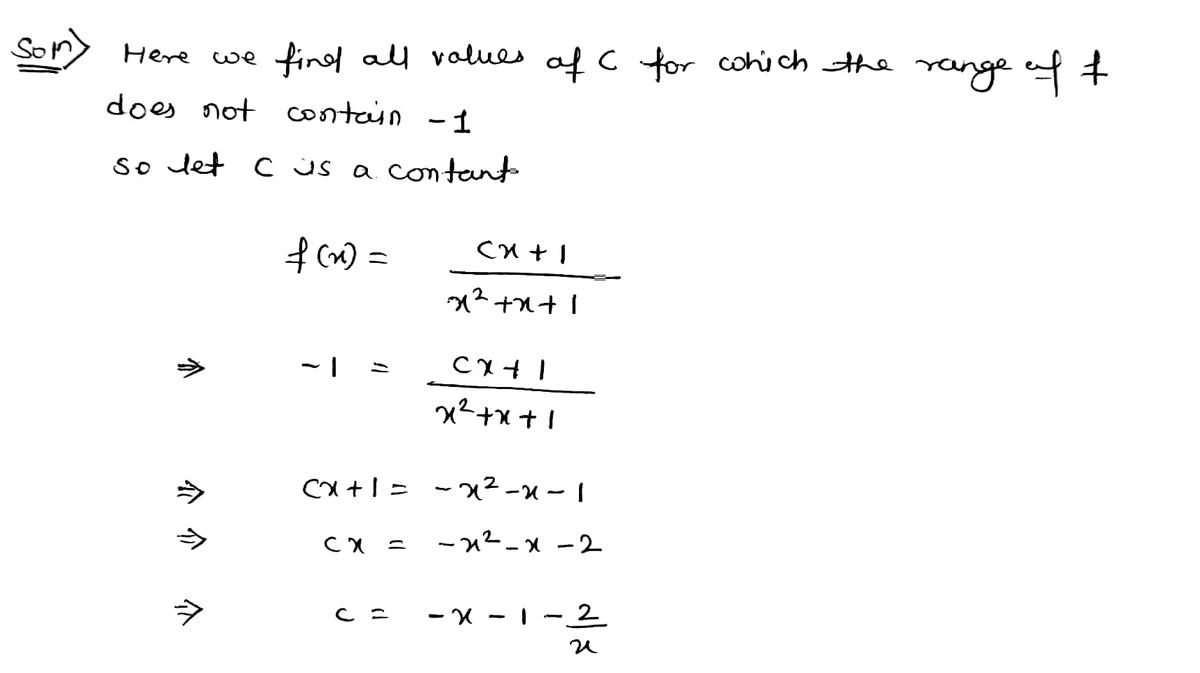 Soln) Here we find all values of C for which the range of f
does not contain -1
so let C is a contant
f(x) = \frac{Cx+1}{x^2+x+1}
⇒ -1 = \frac{Cx+1}{x^2+x+1}
⇒ Cx+1 = -x^2-x-1
⇒ Cx = -x^2-x-2
⇒ C = -x-1-\frac{2}{x}